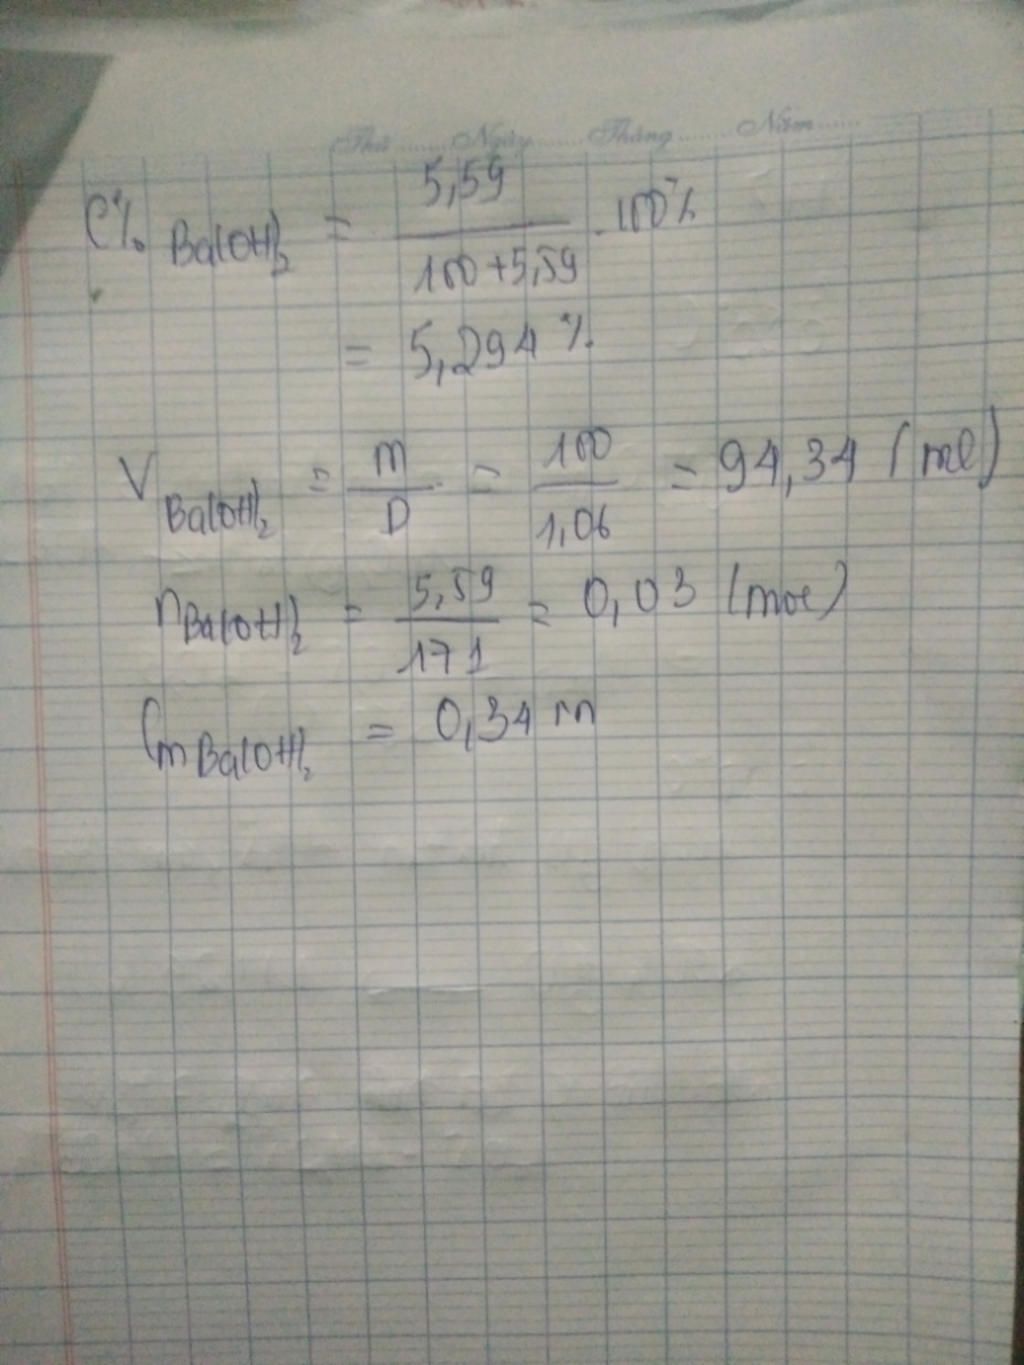 Thứ ........ Ngày ........ Tháng ........ Năm ........
C% Ba(OH)₂ = 5,59 / (100+5,59) . 100%
= 5,294 %
V Ba(OH)₂ = m / D = 100 / 1,06 = 94,34 (ml)
n Ba(OH)₂ = 5,59 / 171 = 0,03 (mol)
Cm Ba(OH)₂ = 0,34 m